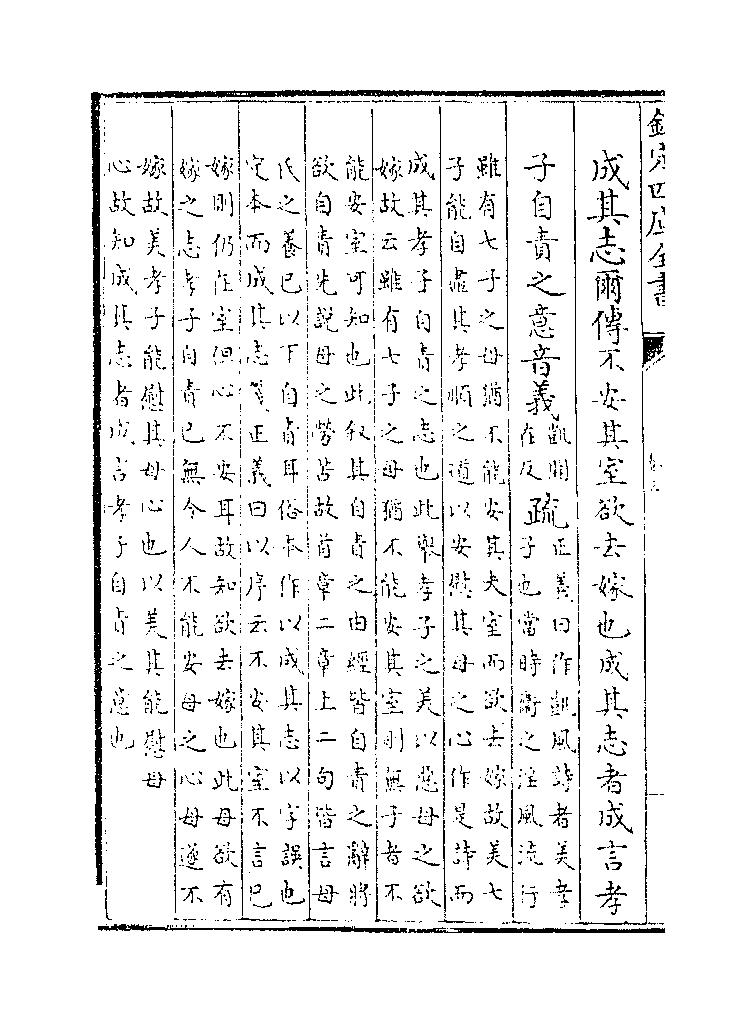 欽定四庫全書
卷三
成其志爾傳不安其室欲去嫁也成其志者成言孝
子自責之意音義凱開在反疏正義曰作凱風詩者美孝
子也當時衛之淫風流行
雖有七子之母猶不能安其夫室而欲去嫁故美七
子能自盡其孝順之道以安慰其母之心作是詩而
成其孝子自責之志也此舉孝子之美以惡母之欲
嫁故云雖有七子之母猶不能安其室則無子者不
能安室可知也此叙其自責之由經皆自責之辭將
欲自責先說母之勞苦故首章二章上二句皆言母
氏之養已以下自責耳俗本作以成其志以字誤也
定本而成其志箋正義曰以序云不安其室不言已
嫁則仍在室但心不安耳故知欲去嫁也此母欲有
嫁之志孝子自責已無令人不能安母之心母遂不
嫁故美孝子能慰其母心也以美其能慰母
心故知成其志者成言孝子自責之意也